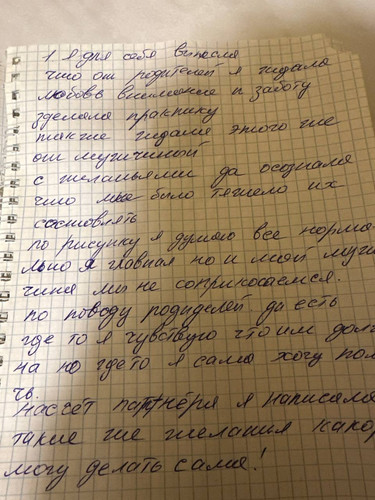 1 Я для себя вынесла
что от родителей я ждала
любовь внимание и заботу
зделала практику
также ждала этого же
от мужчиной
с желаньями да осознала
что мне было тяжело их
состовлять
по рисунку я думаю все норма-
льно я главная но и мой муж
чина мы не соприкосаемся.
по поводу родиделей да есть
где то я чувствую что им долж
на но где то я сама хочу пом
чь.
Насчёт патнёря я написала
такие же желания какор
могу делать сама!